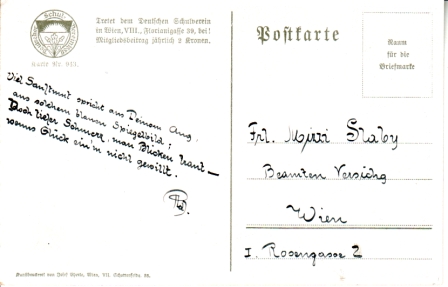 Deutscher Schulverein
Karte Nr. 915.
Tretet dem Deutschen Schulverein
in Wien, VIII., Florianigasse 39, bei!
Mitgliedsbeitrag jährlich 2 Kronen.
Viel Sanftmut spricht aus Deinem Aug,
aus solchem blauen Spiegelbild;
Doch tiefer Schmerz, man Blicken traut —
wenns Glück ein'm nicht gewillt.
Postkarte
Raum
für die
Briefmarke
Frl. Mitzi Slaby
Beamten Versichg
Wien
I. Rosengasse 2
Kunstdruckerei von Josef Eberle, Wien, VII.